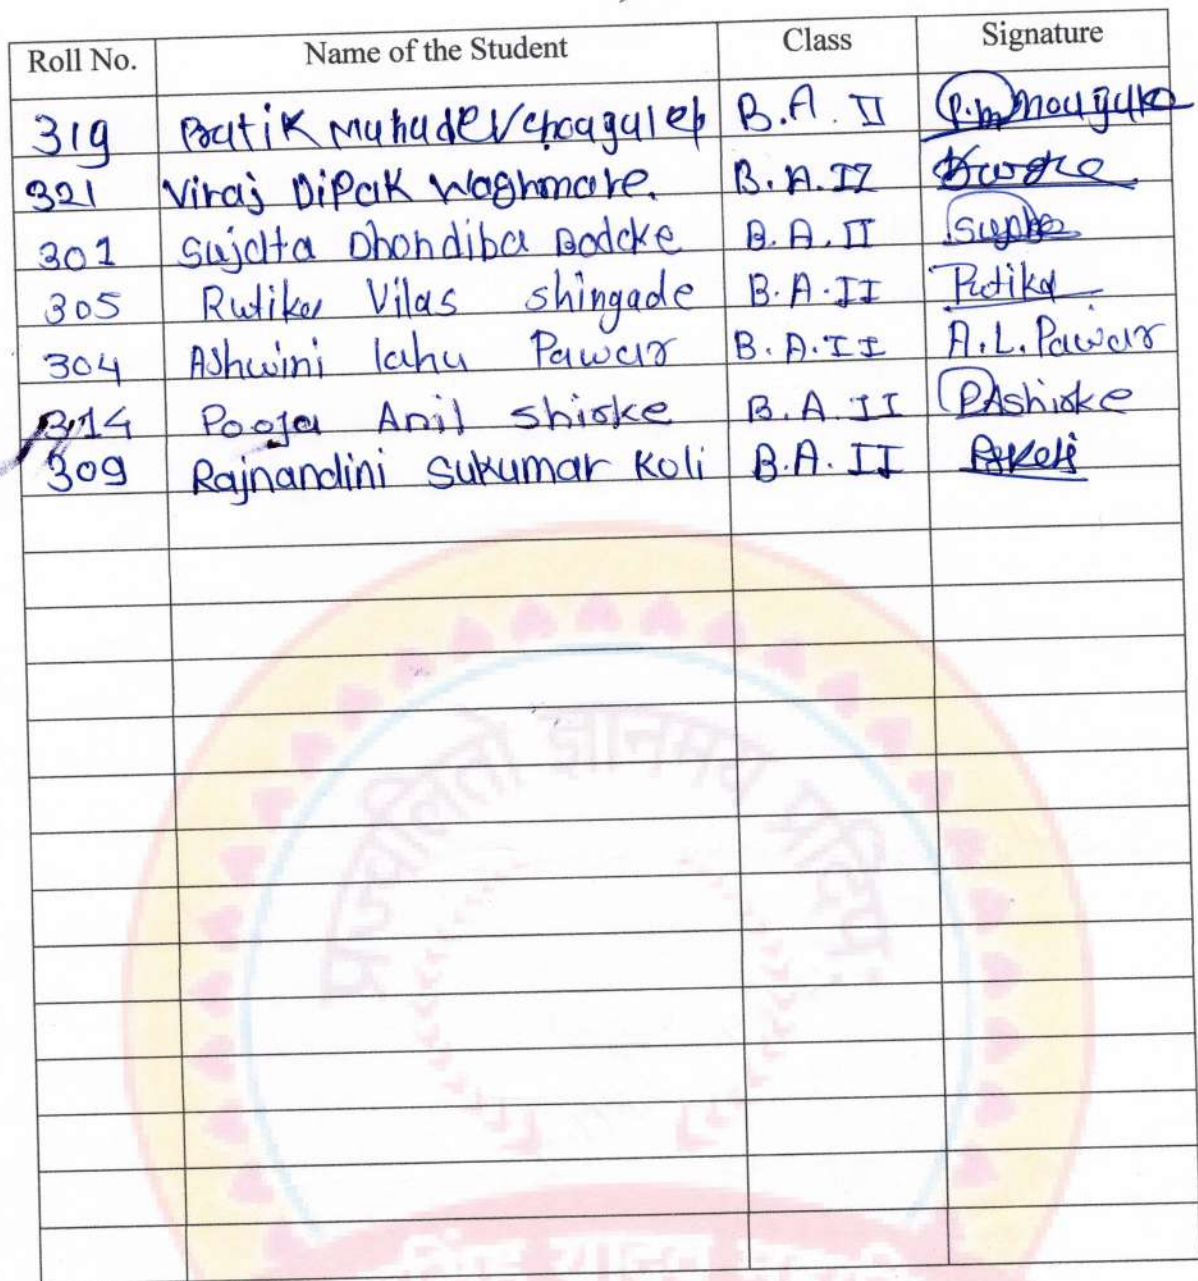 Roll No. Name of the Student Class Signature
319 Pratik B.A. II
321 Viraj Dipak Waghmare. B.A.II
301 Sujata Dhondiba Bodake B.A.II
305 Rutika Vilas shingade B.A.II Rutika
304 Ashwini lahu Pawar B.A.II A.L.Pawar
314 Pooja Anil shirke B.A.II PAshirke
309 Rajnandini Sukumar Koli B.A.II
प्रज्वलितो ज्ञानमय प्रदिपः